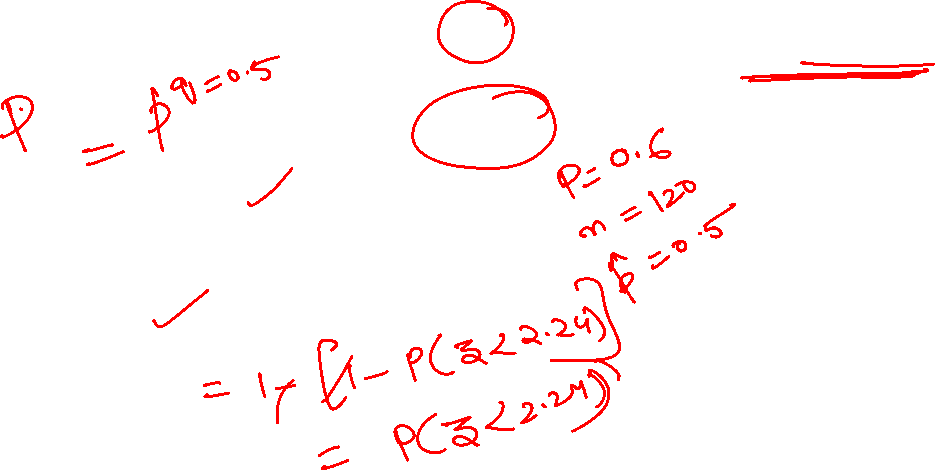 P = p^q=0.5
P=0.6
n=120
p̂=0.5
= 1-[1-P(z<2.24)]
= P(z<2.24)